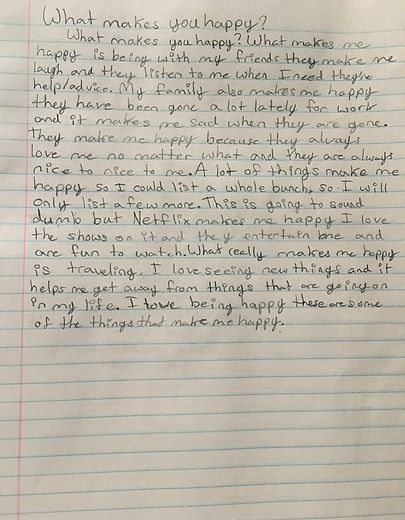 What makes you happy?
What makes you happy? What makes me
happy is being with my friends they make me
laugh and they listen to me when I need they're
help/advice. My family also makes me happy
they have been gone a lot lately for work
and it makes me sad when they are gone.
They make me happy because they always
love me no matter what and they are always
nice to nice to me. A lot of things make me
happy so I could list a whole bunch, so I will
only list a few more. This is going to sound
dumb but Netflix makes me happy I love
the shows on it and they entertain me and
are fun to watch. What really makes me happy
is traveling, I love seeing new things and it
helps me get away from things that are going on
in my life. I love being happy these are some
of the things that make me happy.